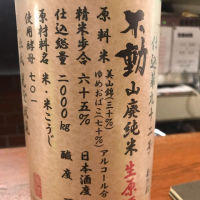 不動 山廃純米 生原
原料米 美山錦(三十%)
ゆめおばこ(七十%)
アルコール分
精米歩合 六十五% 日本酒度
仕込総量 二〇〇〇kg 酸度
原材料名 米・米こうじ
使用酵母 七〇一